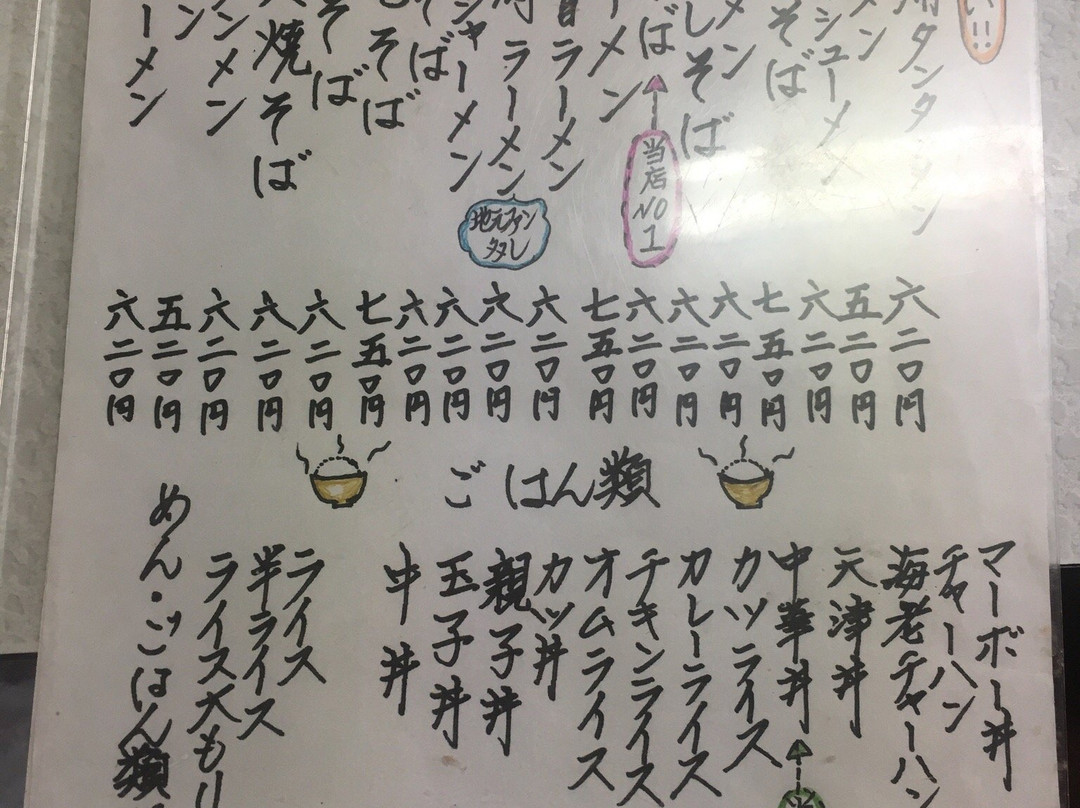 い!!
タンタン
メン
シューメン
そば
メン
しそば
ば
当店NO1
ーメン
ラーメン
ラーメン
地元ファン
タタレ
ジャーメン
そば
そば
そば
焼そば
ンメン
ン
ーメン
六二〇円
五二〇円
六二〇円
七五〇円
六二〇円
六二〇円
六二〇円
七五〇円
六二〇円
六二〇円
六二〇円
六二〇円
七五〇円
六二〇円
六二〇円
六二〇円
五二〇円
六二〇円
ごはん類
マーボー丼
チャーハン
海老チャーハン
天津丼
中華丼
当
カツライス
カレーライス
チキンライス
オムライス
カツ丼
親子丼
玉子丼
中丼
ライス
半ライス
ライス大もり
めん・ごはん類